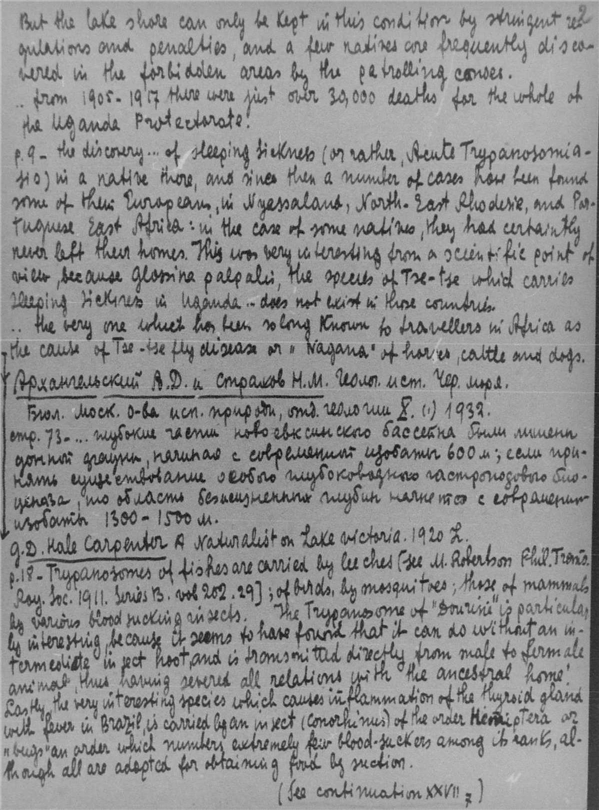 2
But the lake shore can only be kept in this condition by stringent re-
gulations and penalties, and a few natives are frequently disco-
vered in the forbidden areas by the patrolling canoes.
.. from 1905-1917 there were just over 30,000 deaths for the whole of
the Uganda Protectorate!
p.9 - the discovery ... of sleeping sickness (or rather, Acute Trypanosomia-
sis) in a native there, and since then a number of cases have been found
some of them Europeans, in Nyassaland, North-East Rhodesia, and Por-
tuguese East Africa: in the case of some natives, they had certaintly
never left their homes. This was very interesting from a scientific point of
view, because Glossina palpalis, the species of Tse-tse which carries
sleeping sickness in Uganda .. does not exist in those countries.
.. the very one which has been so long known to travellers in Africa as
the cause of Tse-tse fly disease or "Nagana" of horses, cattle and dogs.
Архангельский А.Д. и Страхов Н.М. Геолог. ист. Чер. моря.
Бюл. Моск. о-ва исп. природы, отд. геологии X. (1) 1932.
стр. 73 - ... глубокие части новоэвксинского бассейна были лишены
донной фауны, начиная с современной изобаты 600 м; если при-
нять существование особого глубоководного гастроподового био-
ценоза, то область безжизненных глубин начнется с современной
изобаты 1300 - 1500 м.
G.D. Hale Carpenter A Naturalist on Lake Victoria. 1920 L.
p.18 - Trypanosomes of fishes are carried by leeches [see M. Robertson Phil. Trans.
Roy. Soc. 1911. Series B. vol 202. 29]; of birds, by mosquitoes; those of mammals
by various blood sucking insects. The Trypanosome of "Dourine" is particular-
ly interesting, because it seems to have found that it can do without an in-
termediate insect host, and is transmitted directly from male to female
animal, thus having severed all relations with the ancestral home!
Lastly, the very interesting species which causes inflammation of the thyroid gland
with fever in Brazil, is carried by an insect (Conorhinus) of the order Hemiptera or
"bugs" an order which numbers extremely few blood-suckers among its ranks, al-
though all are adapted for obtaining food by suction.
(See continuation XXVII 7)